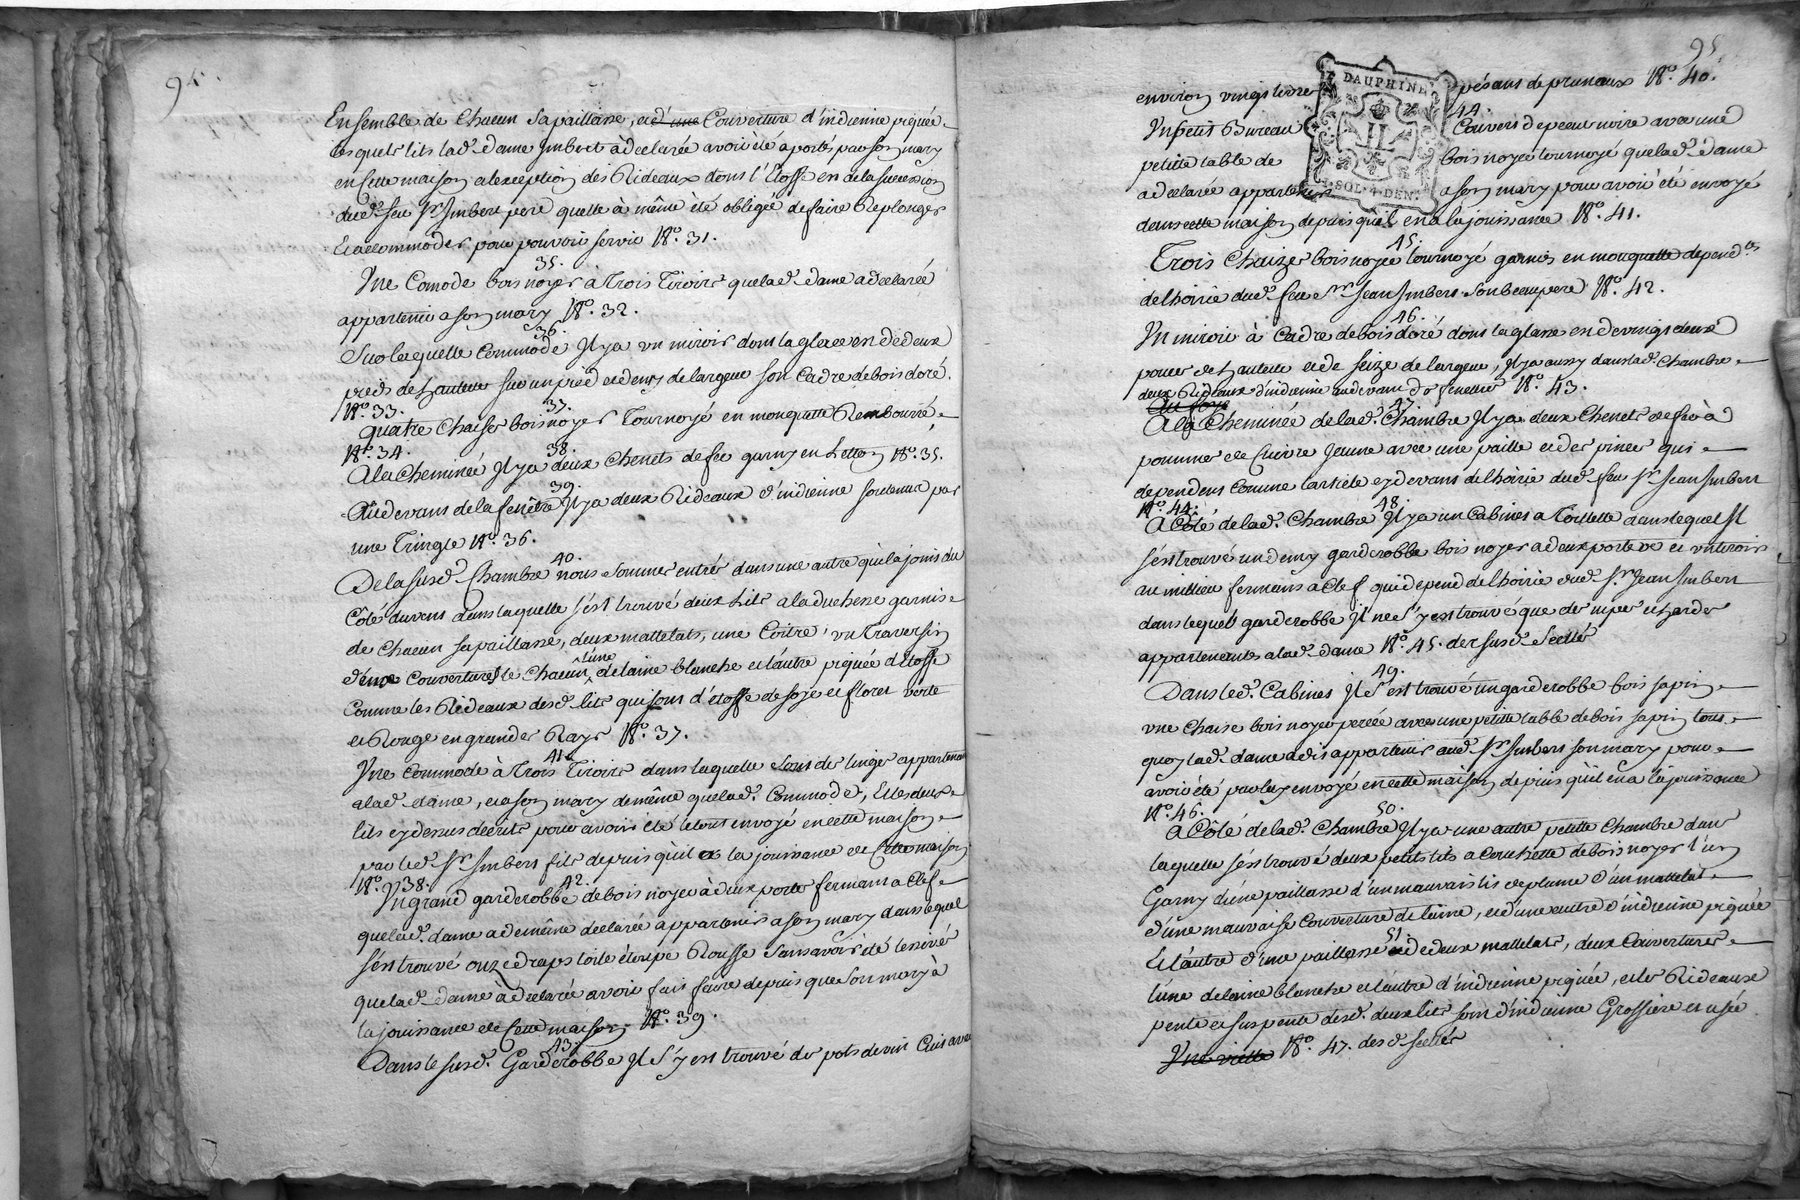 94.
Ensemble de Chacun sa paillasse, et d'une Couverture d'indienne piquée
lesquels lits lad.e dame Imbert à déclaré avoir été aportés par son mary
en Cette maison a l'exception des Rideaux dont l'Etoffe est de la succession
dud. feu Sr. Imbert pere quelle à même été obligée de faire
Et accomoder pour pouvoir servir No. 31.
35.
Une Comode bois noyer à trois Tiroirs que lad.e dame a declaré
appartenir a son mary No. 32.
36.
Sur laquelle Commode Il y a un miroir dont la glace est de deux
pieds de hauteur sur un pied et demy de largeur son Cadre de bois doré.
No. 33.
37.
quatre Chaises bois noyer Tournoyé en mouquette Rembourré
No. 34.
38.
A la Cheminée Il y a deux Chenets de fer garny en Letton No. 35.
39.
Au devant de la fenêtre Il y a deux Rideaux d'indienne soutenus par
une Tringle No. 36.
40.
De la susd.e Chambre nous sommes entrés dans une autre qui a le jour du
Côté du vent dans laquelle s'est trouvé deux Lits a la duchesse garnis
de Chacun sa paillasse, deux mattelats, une Coitre, un Traversin
d'une Couverture le Chacun, l'une de laine blanche et l'autre piquée d'étoffe
Comme les Rideaux desd. lits qui sont d'étoffe de soye et floret verte
et Rouge en grandes Rays No. 37.
41.
Une Commode à trois Tiroirs dans laquelle sont des linges appartenant
a lad.e dame, et a son mary de même que lad.e Commode, Et les deux
lits cy dessus décrits pour avoir été le tout envoyé en cette maison
par led. Sr. Imbert fils depuis qu'il a la jouissance de Cette maison
No. 38.
42.
Un grand garderobbe de bois noyer à deux portes fermant a Clef
que lad.e dame a de même déclaré appartenir a son mary dans lequel
s'est trouvé onze draps toile étoupe Rousse sans avoir été lessivés
que lad.e dame à déclaré avoir fait faire depuis que son mary à
la jouissance de Cette maison No. 39.
43.
Dans le susd. Garderobbe Il s'y est trouvé des pots de vin Cuit avec
95.
environ vingt livres pésant de pruneaux No. 40.
DAUPHINE
SOL. 4. DEN.
44.
Un petit Bureau Couvert de peau noire avec une
petite table de bois noyer tournoyé que lad.e dame
a declaré appartenir a son mary pour avoir été envoyé
dans cette maison depuis qu'il en a la jouissance No. 41.
45.
Trois Chaizes bois noyer tournoyé garnis en mouquette depend.tes
de lhoirie dud. feu Sr. Jean Imbert son beaupere No. 42.
46.
Un miroir à Cadre de bois doré dont la glasse est de vingt deux
pouces de hauteur et de seize de largeur, Il y a aussy dans lad. Chambre
deux Rideaux d'indienne au devant des fenettres No. 43.
47.
A la Cheminée de lad.e Chambre Il y a deux Chenets de fer à
pommes de Cuivre Jaune avec une paille et des pinces qui
dependent Comme l'article cy devant de lhoirie dud. feu Sr. Jean Imbert
No. 44.
48.
A Côté de lad.e Chambre Il y a un Cabinet a Toillette dans lequel Il
s'est trouvé un demy garderobbe bois noyer a deux portes et un tiroir
au millieu fermant a Clef qui depend de lhoirie dud. Sr. Jean Imbert
dans lequel garderobbe Il ne s'y est trouvé que des nipes et hardes
appartenants a lad.e dame No. 45. des susd. scellés
49.
Dans led. Cabinet Il s'est trouvé un garderobbe bois sapin
une Chaise bois noyer percée avec une petitte table de bois sapin tout
quoy lad.e dame a dit appartenir aud. Sr. Imbert son mary pour
avoir été par luy envoyé en cette maison depuis qu'il en a la jouissance
No. 46.
50.
A Côté de lad.e Chambre Il y a une autre petitte Chambre dans
laquelle s'est trouvé deux petits lits a Couchette de bois noyer l'un
Garny d'une paillasse d'un mauvais lit de plume d'un mattelat
d'une mauvaise Couverture de laine, et d'une autre d'indienne piquée
51.
Et l'autre d'une paillasse et de deux mattelats, deux Couvertures
l'une de laine blanche et l'autre d'indienne piquée, et les Rideaux
pente et suspente desd. deux lits sont d'indienne Grossiere et usé
Une vieille No. 47. desd. scellés